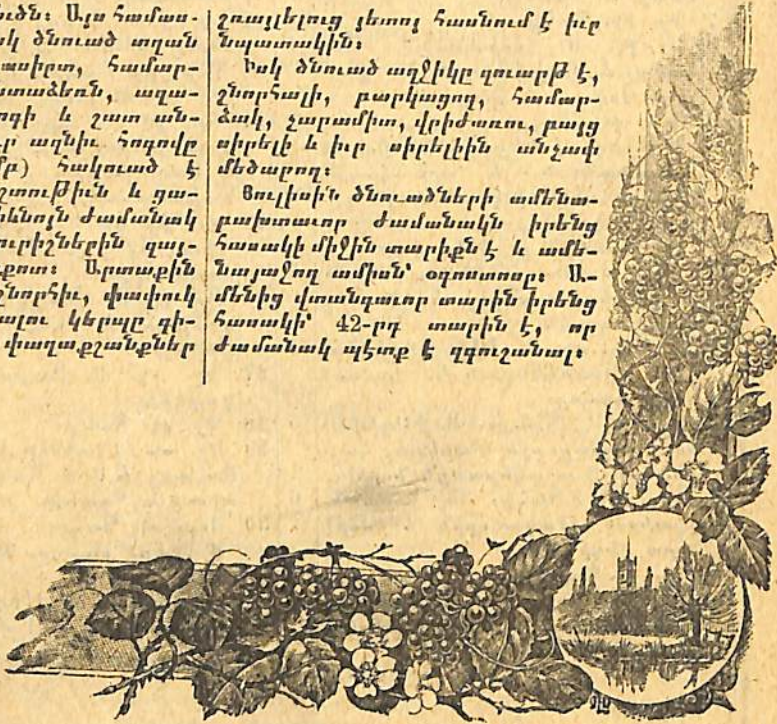 ւեծն։ Այս համաս-
կ ծնուած տղան
ասիրտ, համար-
տաձեռն, ազա-
ոգի և շատ ան-
ւր ազնիւ հոգովը
մբ) հակուած է
շտութիւն և ցա-
ևնոյն ժամանակ
ուրիշներին զայ-
քոտ։ Արտաքին
շնորհիւ, փափուկ
ալու կերպը գի-
փաղաքշանքներ
շռայլելուց յետոյ հասնում է իւր
նպատակին։
Իսկ ծնուած աղջիկը զուարթ է,
շնորհալի, բարկացող, համար-
ձակ, չարամիտ, վրիժառու, բայց
սիրելի և իւր սիրելիին անչափ
մեծարող։
Յուլիսին ծնուածների ամենա-
բախտաւոր ժամանակն իրենց
հասակի միջին տարիքն է և ամե-
նայաջող ամիսն՝ օգոստոսը։ Ա-
մենից վտանգաւոր տարին իրենց
հասակի՝ 42-րդ տարին է, որ
ժամանակ պէտք է զգուշանալ։